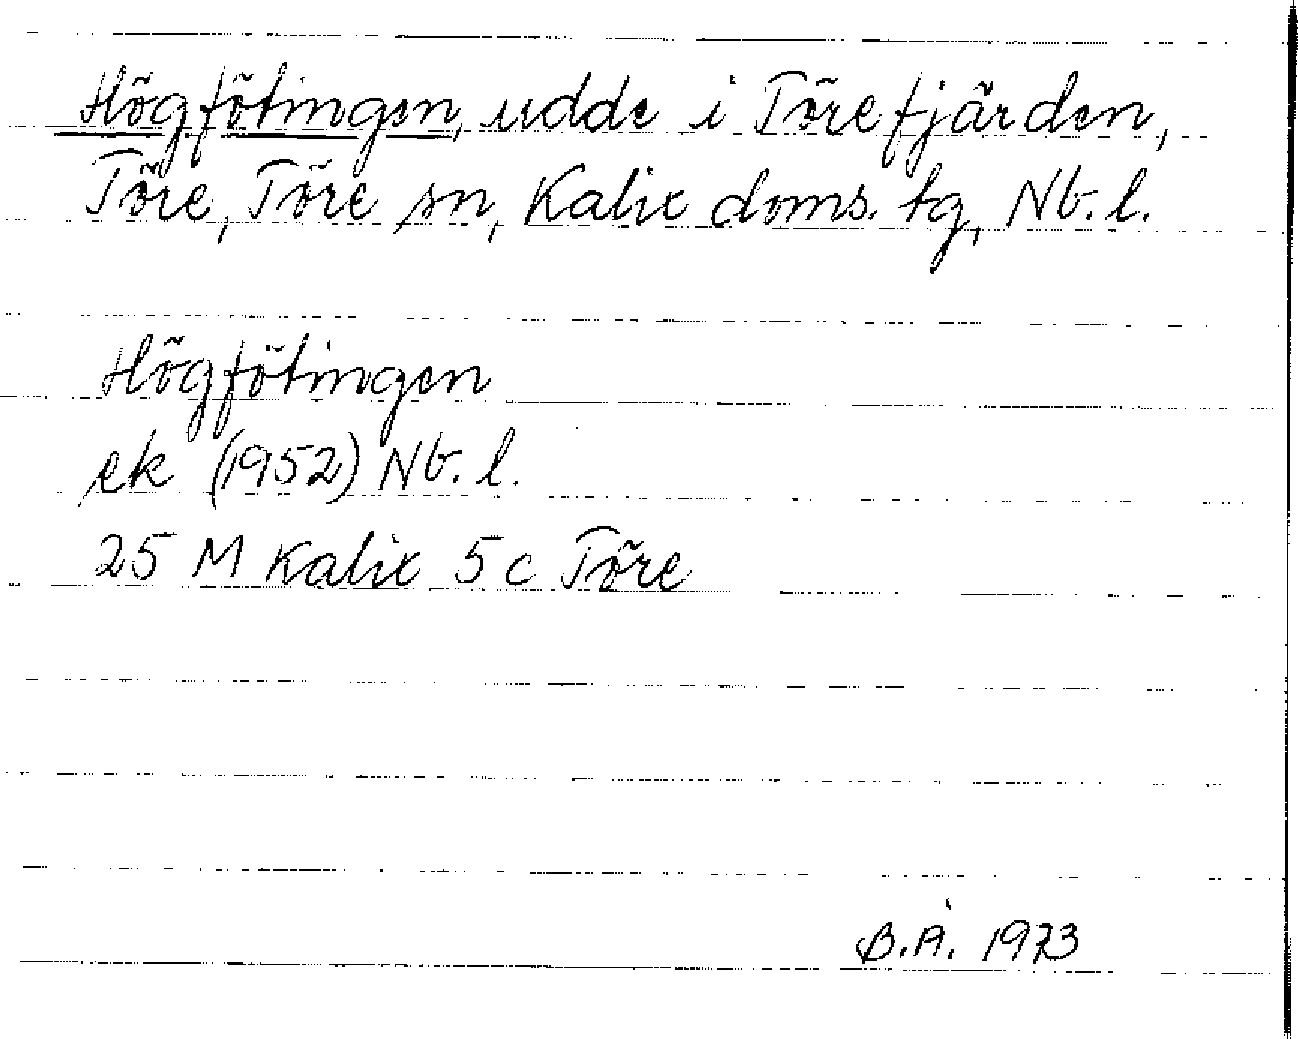 Högfötingen, udde i Törefjärden,
Töre, Töre sn, Kalix doms. tg, Nb. l.
Högfötingen
ek (1952) Nb. l.
25 M Kalix 5c Töre
B.Å. 1973